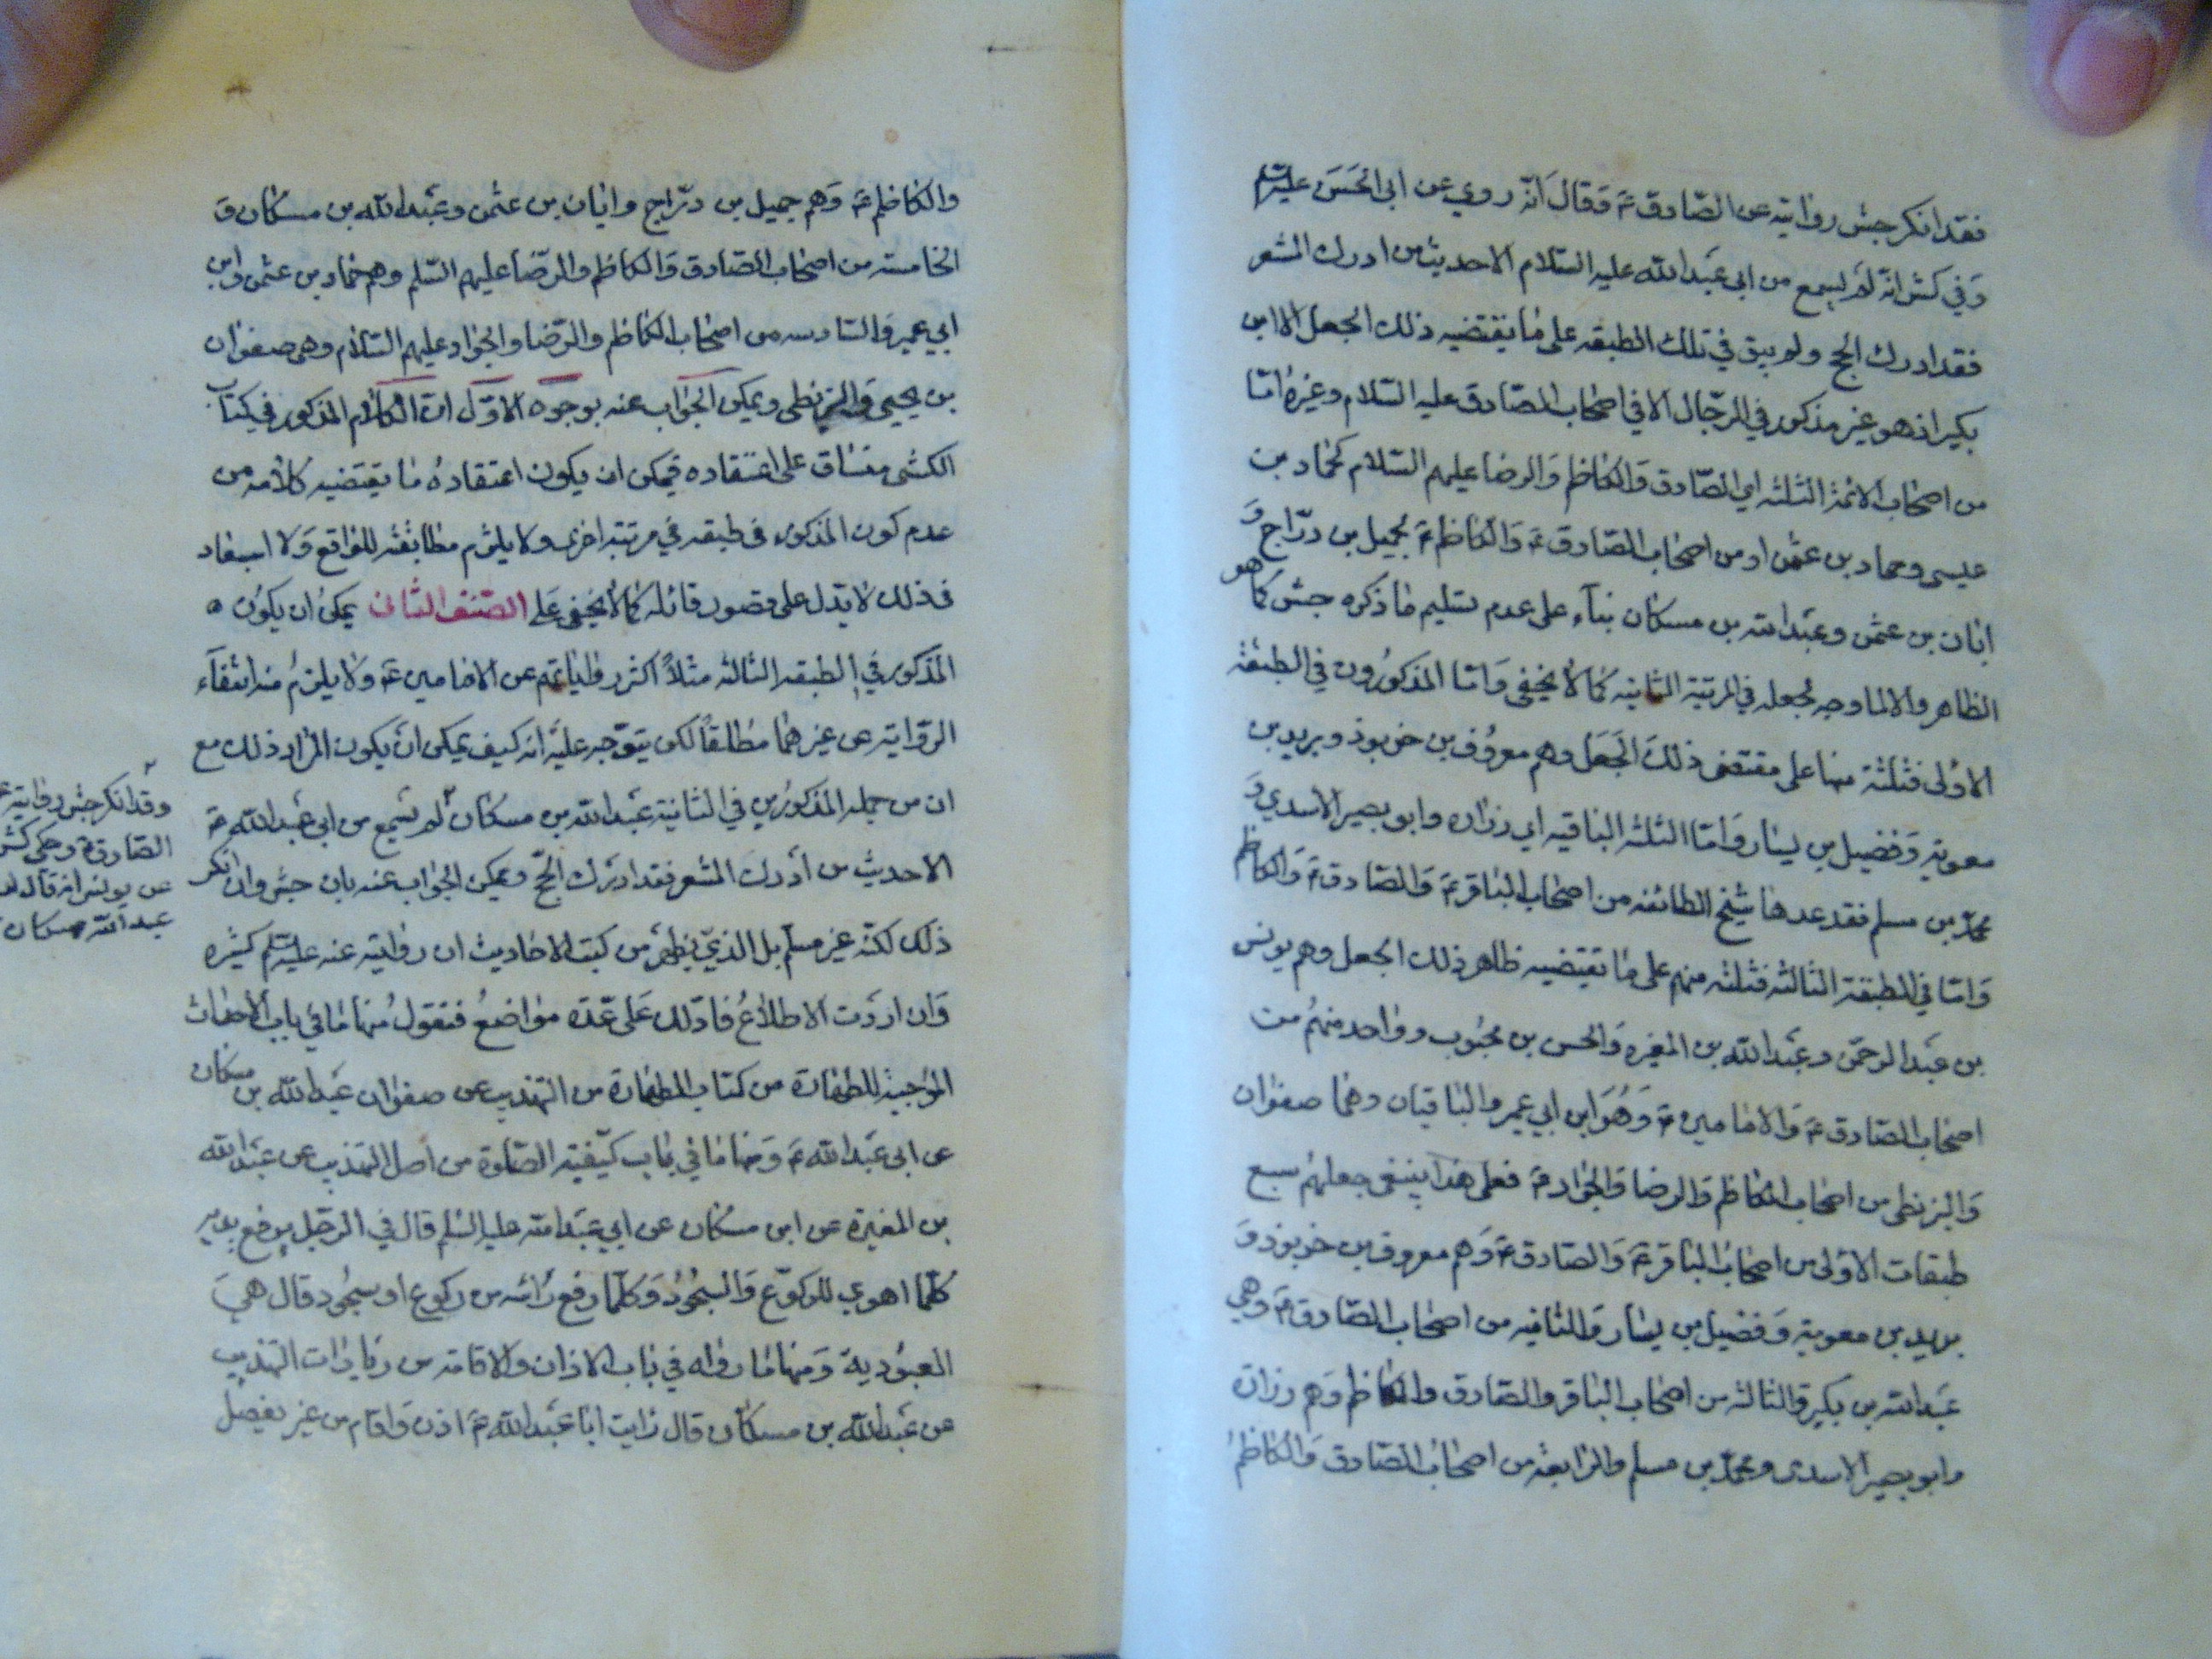 فقد انكر جش روايته عن الصادق ع وقال انه روي عن ابى الحسن عليه السلم
وفي كش انه لم يسمع من ابى عبد الله عليه السلام الا حديث من ادرك المشعر
فقد ادرك الحج ولم يبق في تلك الطبقه على ما يقتضيه ذلك الجعل الا ابن
بكير اذ هو غير مذكور في الرجال الا في اصحاب الصادق عليه السلام وغيره اما
من اصحاب الائمة الثلثه اي الصادق والكاظم والرضا عليهم السلام كحماد بن
عيسى وحماد بن عثمن او من اصحاب الصادق ع والكاظم ع كجميل بن دراج و
ابان بن عثمن وعبد الله بن مسكان بناء على عدم تسليم ما ذكره جش كما هو
الظاهر والا لما وجه لجعله في المرتبة الثانيه كما لا يخفى واما المذكورون في الطبقة
الاولى فثلثة منها على مقتضى ذلك الجعل وهم معروف بن خربوذ وبريد بن
معوية وفضيل بن يسار واما الثلثه الباقيه اي زراره وابو بصير الاسدي و
محمد بن مسلم فقد عدها شيخ الطائفه من اصحاب الباقر ع والصادق ع والكاظم
واما في الطبقة الثالثه فثلثه منهم على ما تقتضيه ظاهر ذلك الجعل وهم يونس
بن عبد الرحمن وعبد الله بن المغيره والحسن بن محبوب وواحد منهم من
اصحاب الصادق ع والامامين ع وهو ابن ابي عمير والباقيان وهما صفوان
والبزنطى من اصحاب الكاظم والرضا والجواد ع فعلى هذا ينبغى جعلهم سبع
طبقات الاولى من اصحاب الباقر ع والصادق ع وهم معروف بن خربوذ و
بريد بن معوية وفضيل بن يسار والثانيه من اصحاب الصادق ع وهي
عبد الله بن بكير والثالثه من اصحاب الباقر والصادق والكاظم وهم زرارة
وابو بصير الاسدى ومحمد بن مسلم والرابعة من اصحاب الصادق والكاظم
والكاظم ع وهم جميل بن دراج وابان بن عثمن وعبد الله بن مسكان و
الخامسته من اصحاب الصادق والكاظم والرضا عليهم السلم وهم حماد بن عثمن وابن
ابي عمير والسادسه من اصحاب الكاظم والرضا والجواد عليهم السلام وهى صفوان
بن يحيى والبزنطى ويمكن الجواب عنه بوجوه الاول ان الكلام المذكور في كتاب
الكشى منساق على اعتقاده فيمكن ان يكون اعتقاده ما يقتضيه كلامه من
عدم كون المذكور في طبقه في مرتبة اخرى ولا يلزم مطابقته للواقع ولا استبعاد
في ذلك لا يدل على قصور قائله كما لا يخفى على الصنف الثانى يمكن ان يكون
المذكور في الطبقه الثالثه مثلا اكثر رواياتهم عن الامامين ع ولا يلزم منه انتفاء
الرواية عن غيرهما مطلقا لكن يتوجه عليه انه كيف يمكن ان يكون المراد ذلك مع
ان من جمله المذكورين في الثانية عبد الله بن مسكان لم يسمع من ابى عبد الله ع
الا حديث من أدرك المشعر فقد ادرك الحج ويمكن الجواب عنه بان جش وان انكر
ذلك لكنه غير مسلم بل الذي يظهر من كتب الاحاديث ان روايته عنه عليه السلم كثيره
وان اردت الاطلاع فادلك على عدة مواضع فنقول منها ما في باب الاحداث
الموجبة للطهارة من كتاب الطهارة من التهذيب عن صفوان عبد الله بن مسكان
عن ابى عبد الله ع ومنها ما في باب كيفية الصلوة من اصل التهذيب عن عبد الله
بن المغيرة عن ابن مسكان عن ابي عبد الله عليه السلم قال في الرجل يرفع يديه
كلما اهوى للركوع والسجود وكلما رفع رأسه من ركوع او سجود قال هي
العبودية ومنها ما رواه في باب الاذان والاقامته من زيادات التهذيب
عن عبد الله بن مسكان قال رايت ابا عبد الله ع اذن واقام من غير تفصيل
وقد انكر جش روايته عن
الصادق ع وحكى كش
عن يونس انه قال
عبد الله مسكان